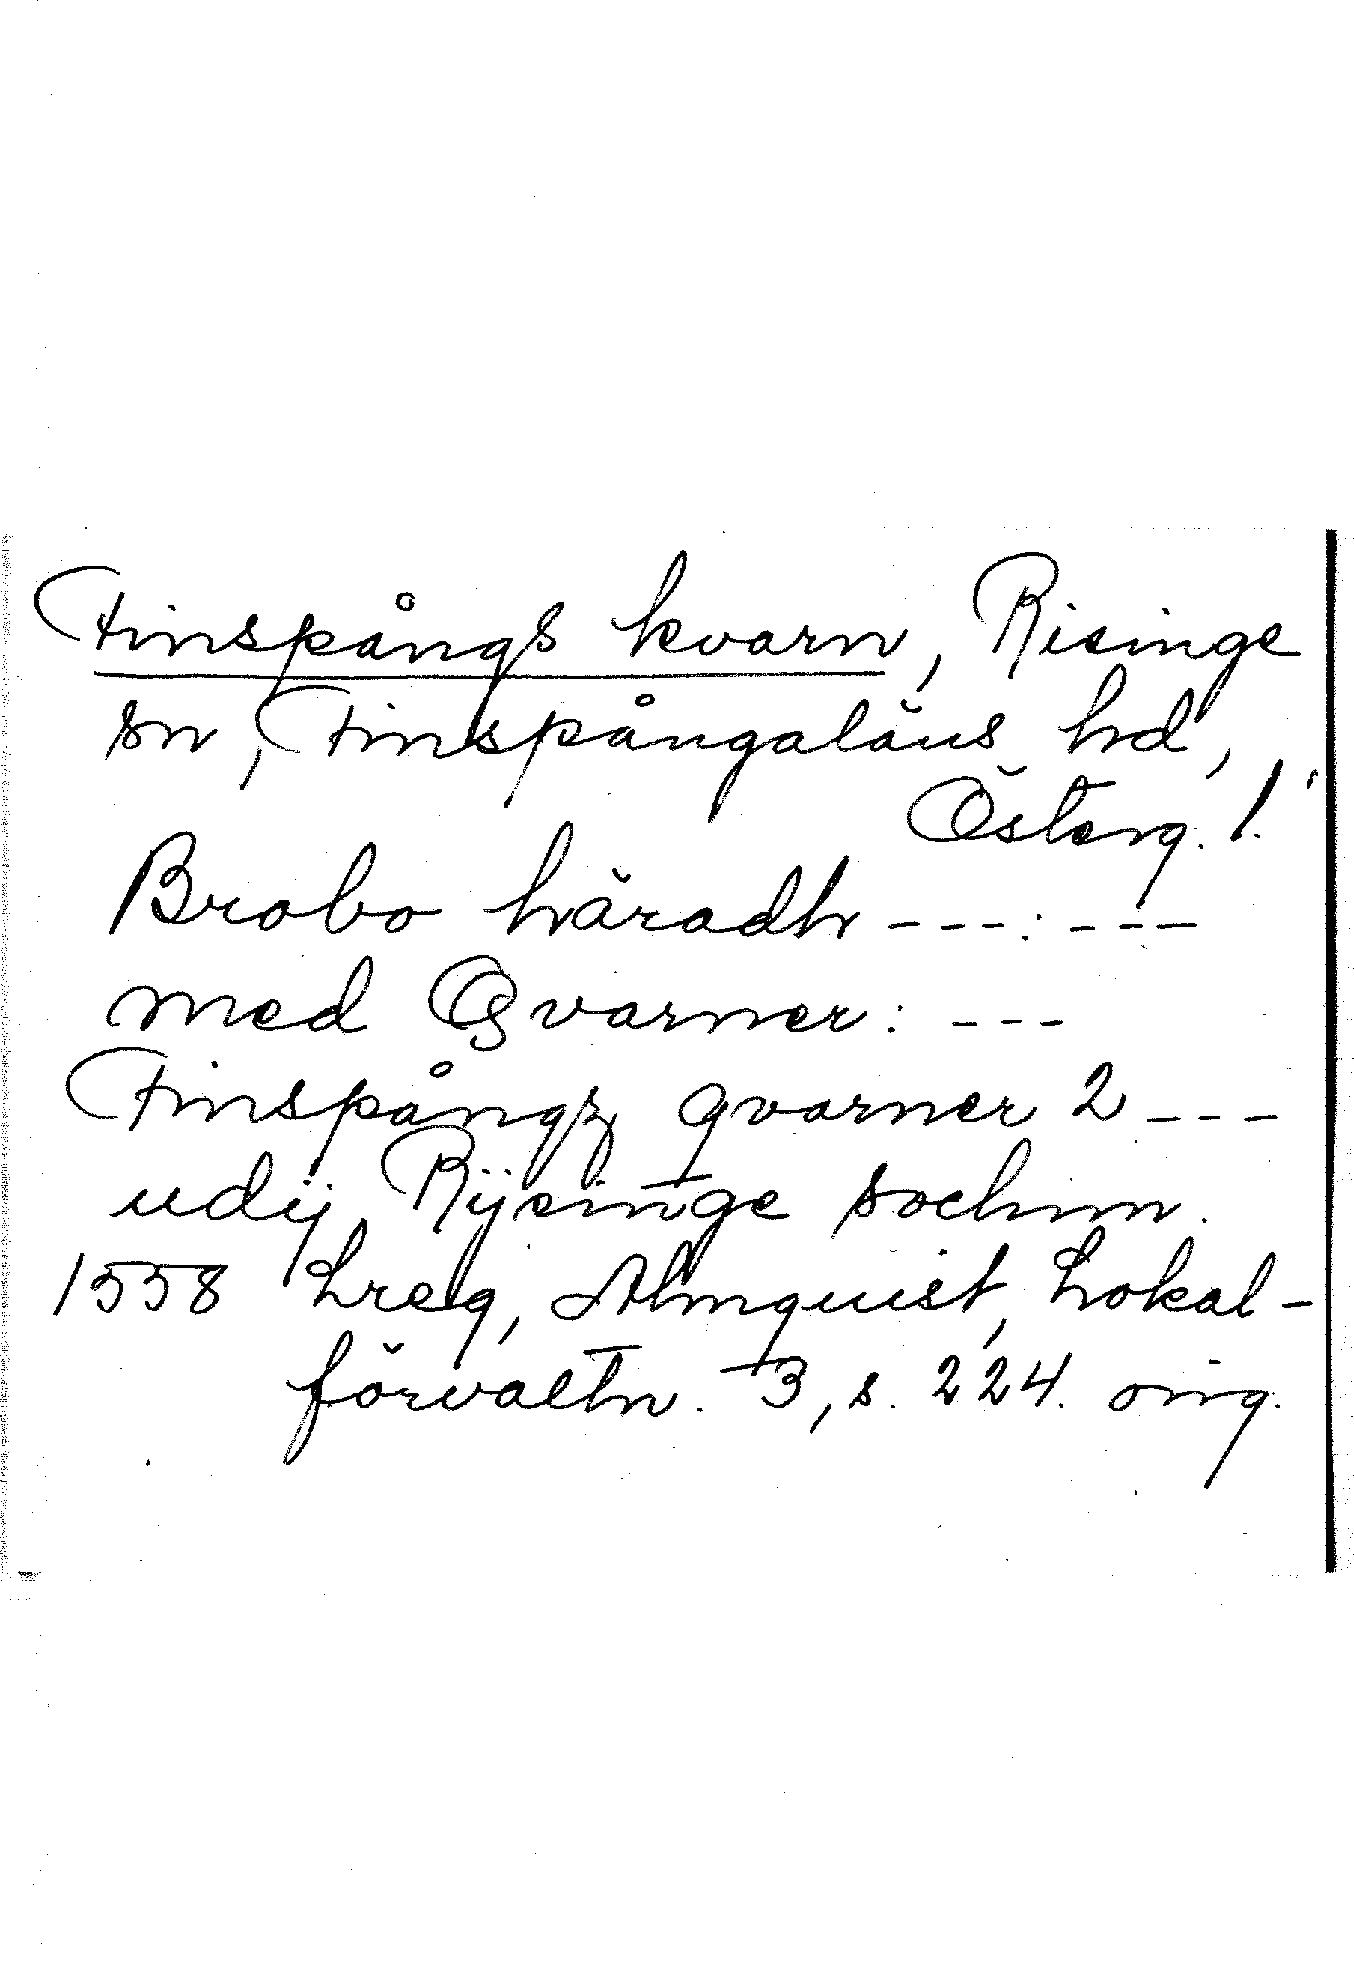 Finspångs kvarn, Risinge
sn, Finspångaläns hd,
Österg. l.
Brobo häradh ---:---
med Qvarner: ---
Finspångz qvarner 2 ---
udij Rijsinge sochnn.
1558 Lreg, Almquist, Lokal-
förvaltn. 3, s. 224. orig.